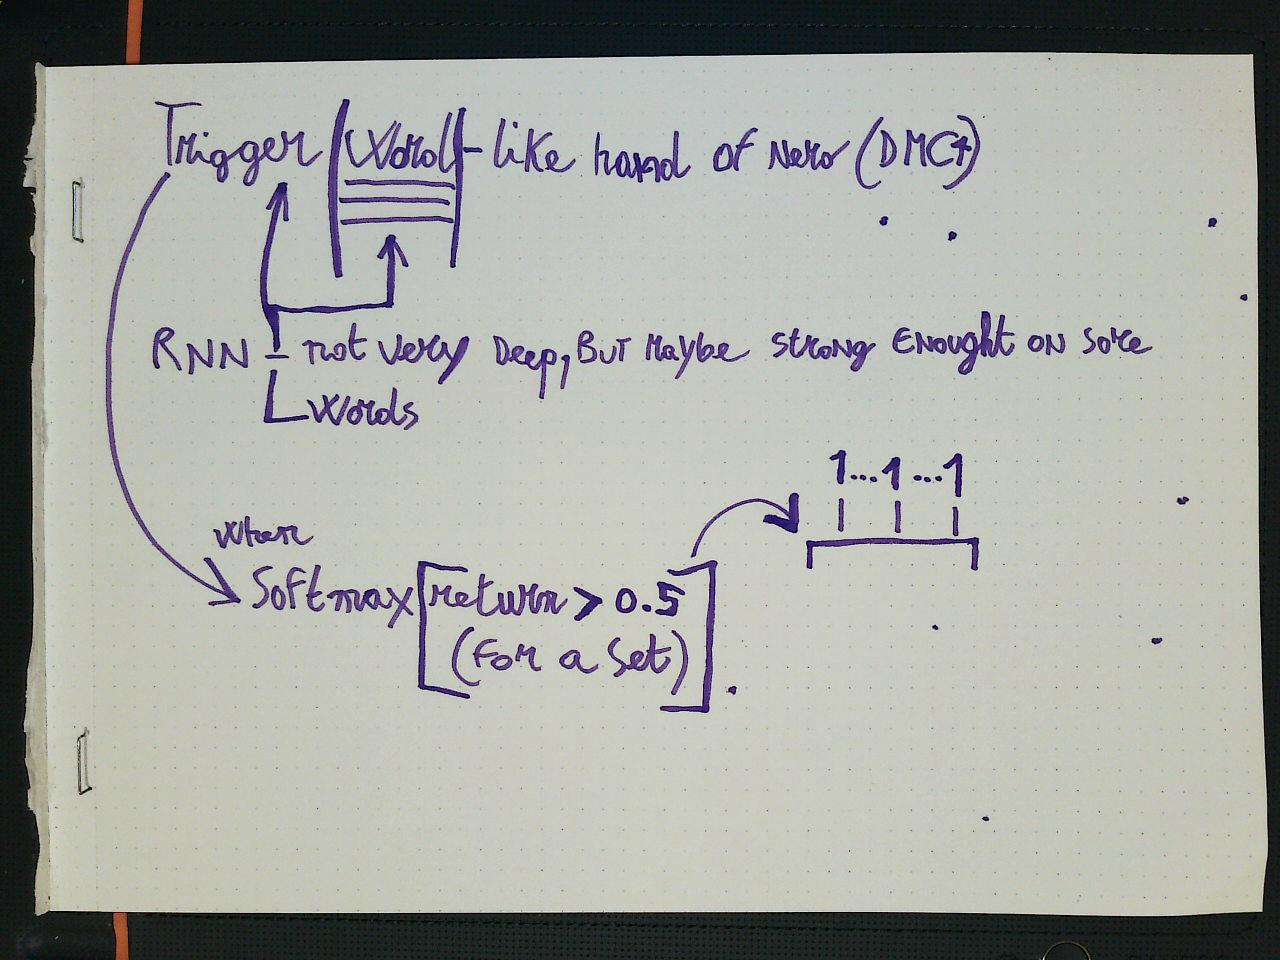 Trigger Word - like hand of Nero (DMC4)
RNN - not very Deep, But Maybe strong Enought on some
words
1...1...1
when
Softmax [return > 0.5
(for a set)].